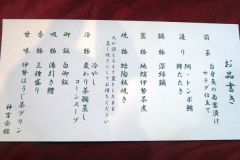 お品書き
前菜 白身魚の南蛮漬け
サラダ仕立て
造り 鯛・トンボ鮪
鍋物 深緑鍋
蓋物 地蛸伊勢茶煮
焼物 鮑陶板焼き
冷物 冷やし
変わり茶碗蒸し
コーンスープ
御飯 白御飯
吸物 湯引き鱧
香物 三種盛り
甘味 伊勢ほうじ茶プリン
神宮会館